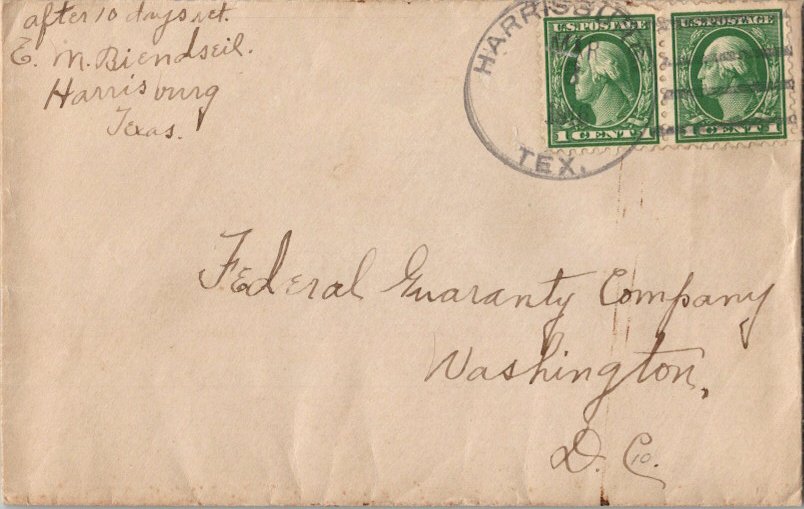 after 10 days ret.
E. M. Biendseil.
Harrisburg
Texas.
HARRISBURG
MAR
TEX.
U.S. POSTAGE
1 CENT 1
U.S. POSTAGE
1 CENT 1
Federal Guaranty Company
Washington,
D. C.
10